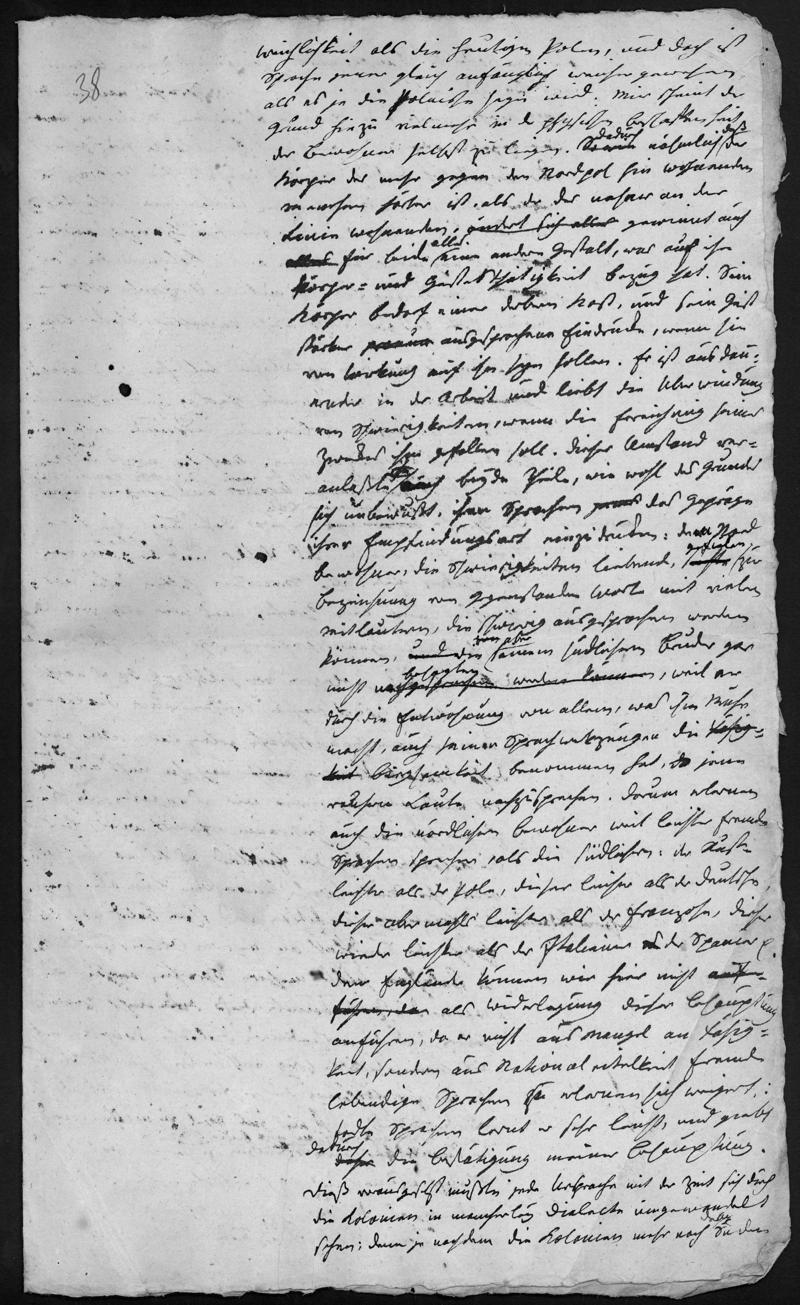 38
weichlichkeit als die heutigen Polen, und doch ist
Sprache jener gleich anfänglich weicher gewesen
als es je die Polnische seyn wird. Mir scheint der
Grund hiezu vielmehr in d. physischen beschaffenheit
der bewohner selbst zu liegen. dadurch nämlich daß der
Körper der mehr gegen den Nordpol hin wohnenden
menschen härter ist, als der der näher an der
Linie wohnenden, ändert sich alles gewinnt auch
alles für beide alles eine andere Gestalt, was auf ihre
Körper= und Geistesthätigkeit bezug hat. Sein
Körper bedarf einer derben Kost, und sein Geist
stärker ausgesprochene Eindrücke, wenn sie
von wirkung auf ihn seyn sollen. Er ist ausdau=
ernder in der Arbeit und liebt die Überwindung
von Schwierigkeiten, wenn die Erreichung seines
Zweckes ihm gefallen soll. dieser Umstand ver=
anlaßte auch beyde Theile, wie wohl des Grundes
sich unbewußt, ihren Sprachen das gepräge
ihrer Empfindungsart einzudrücken: der Nord
bewohner, die Schwierigkeiten liebend, zur
bezeichnung von Gegenständen Worte mit vielen
mitlautern, die schwierig ausgesprochen werden
können, und die von seinem südlichern Bruder gar
nicht nachgesprochen werden können, weil er
durch die Entwöhnung von allem, was ihm Mühe
macht, auch seinen Sprachwerkzeugen die Fähig=
keit biegsamkeit benommen hat, jene
rauhern Laute nachzusprechen. Darum erlernen
auch die nördlichern bewohner weit leichter fremde
Sprachen sprechen, als die südlichern: der Russe
leichter als der Pole, dieser leichter als der Deutsche,
dieser abermahls leichter als der Franzose, dieser
wieder leichter als der Italiener der Spanier
den Engländer können wir hier nicht
als widerlegung dieser behauptung
anführen, da er nicht aus Mangel an Fähig=
keit, sondern aus Nationaleitelkeit fremde
lebendige Sprachen zu erlernen sich weigert;
todte Sprachen lernt er sehr leicht, und giebt
dadurch die bestätigung meiner behauptung.
Dieß vorausgesetzt mußte jede Ursprache mit der Zeit sich durch
die Kolonien in mancherley Dialecte umgewandelt
sehen; denn je nachdem die Kolonien mehr nach Süden